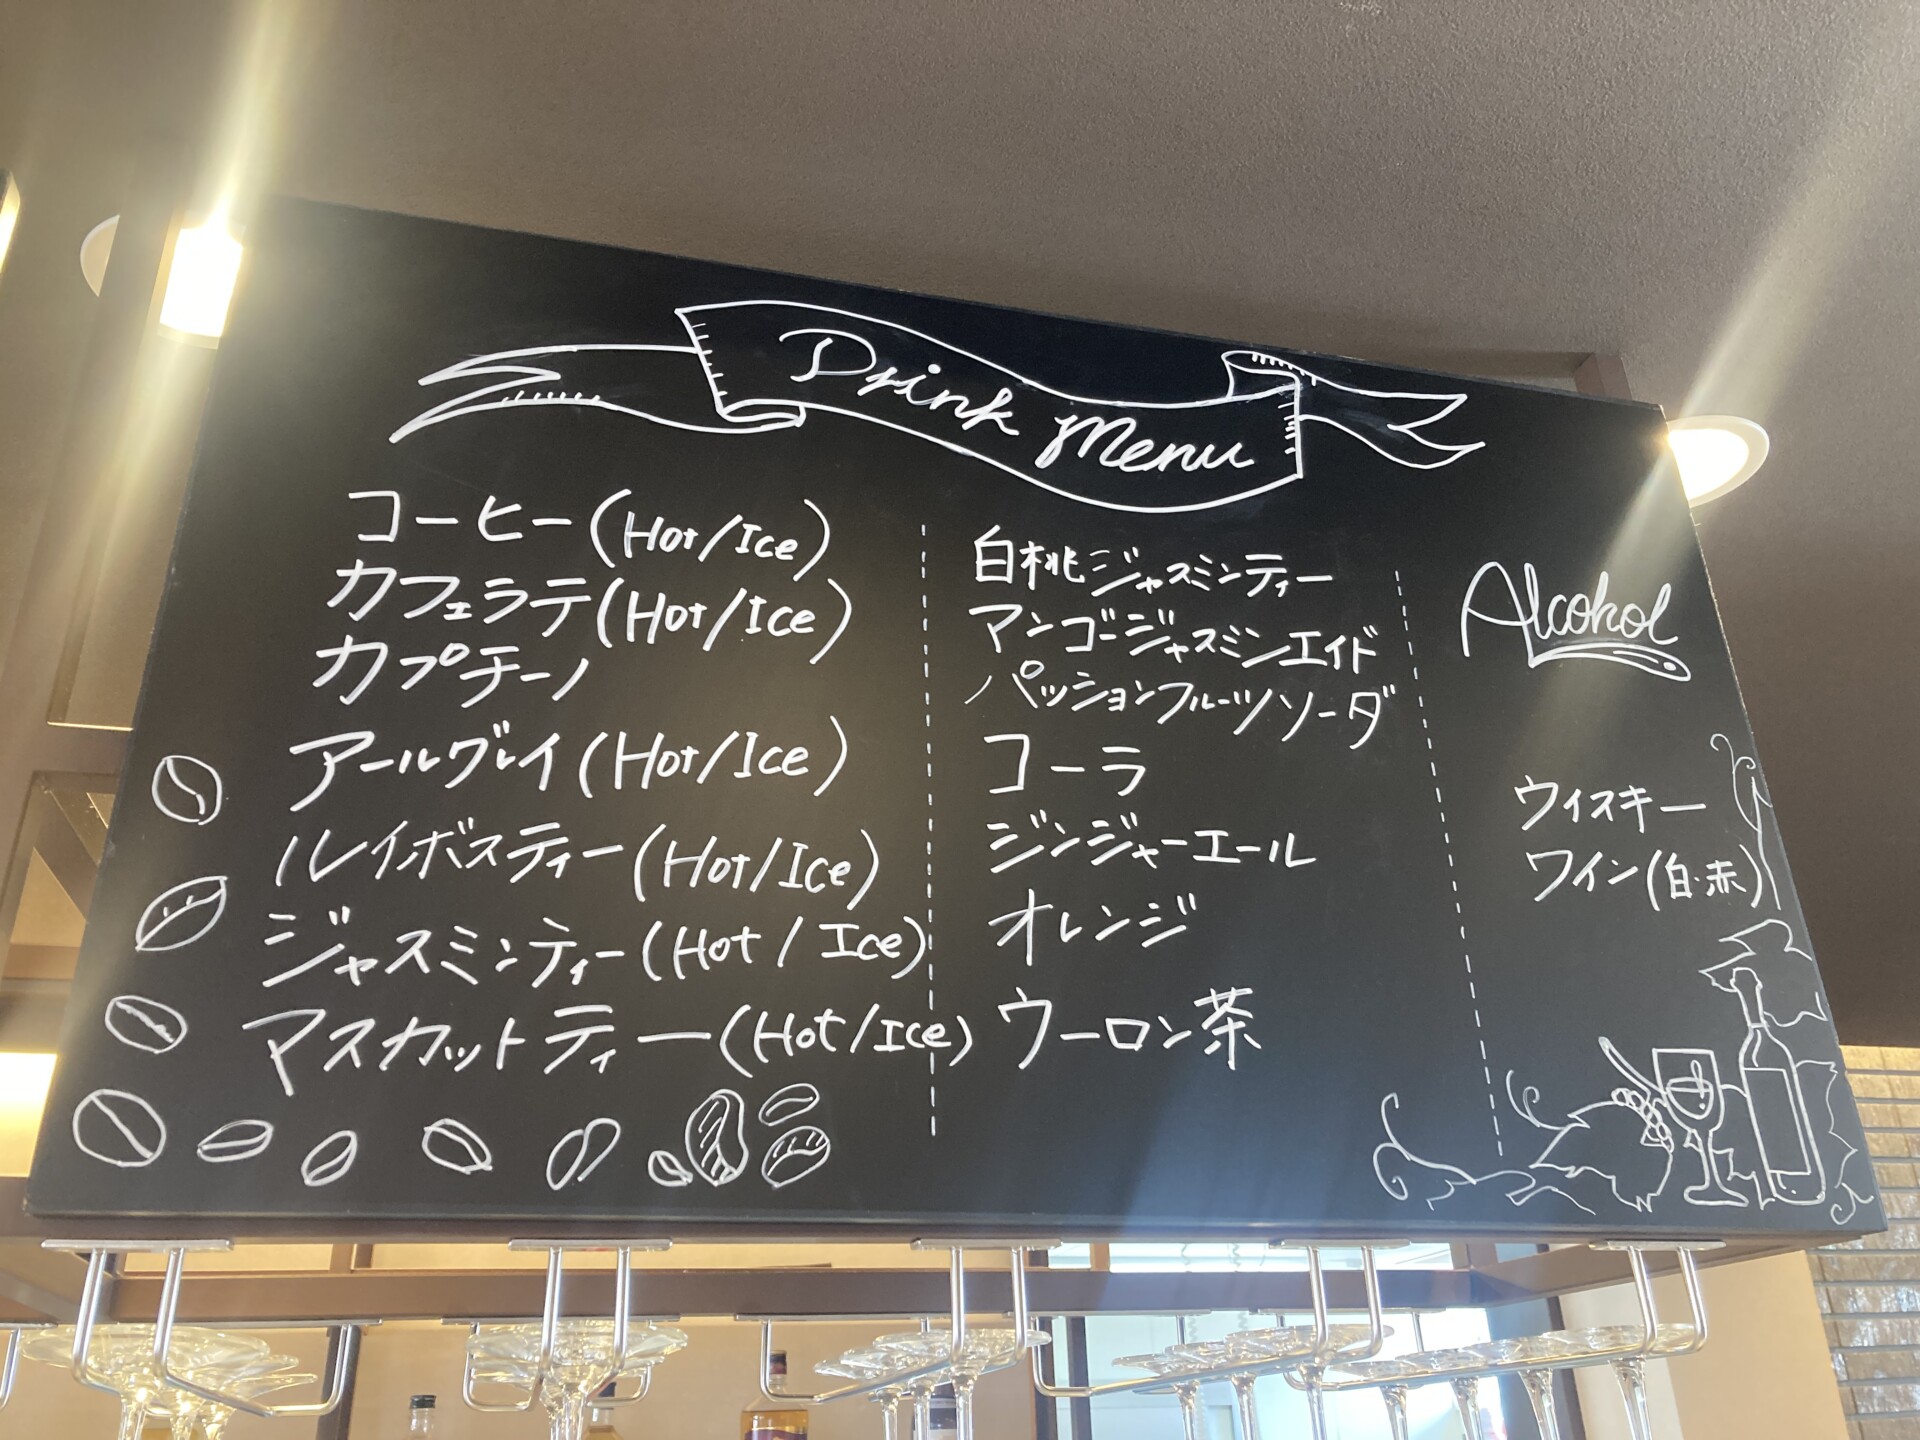 Drink Menu
コーヒー(Hot/Ice)
カフェラテ(Hot/Ice)
カプチーノ
アールグレイ(Hot/Ice)
ルイボスティー(Hot/Ice)
ジャスミンティー(Hot/Ice)
マスカットティー(Hot/Ice)
白桃ジャスミンティー
マンゴージャスミンエイド
パッションフルーツソーダ
コーラ
ジンジャーエール
オレンジ
ウーロン茶
Alcohol
ウィスキー
ワイン(白・赤)